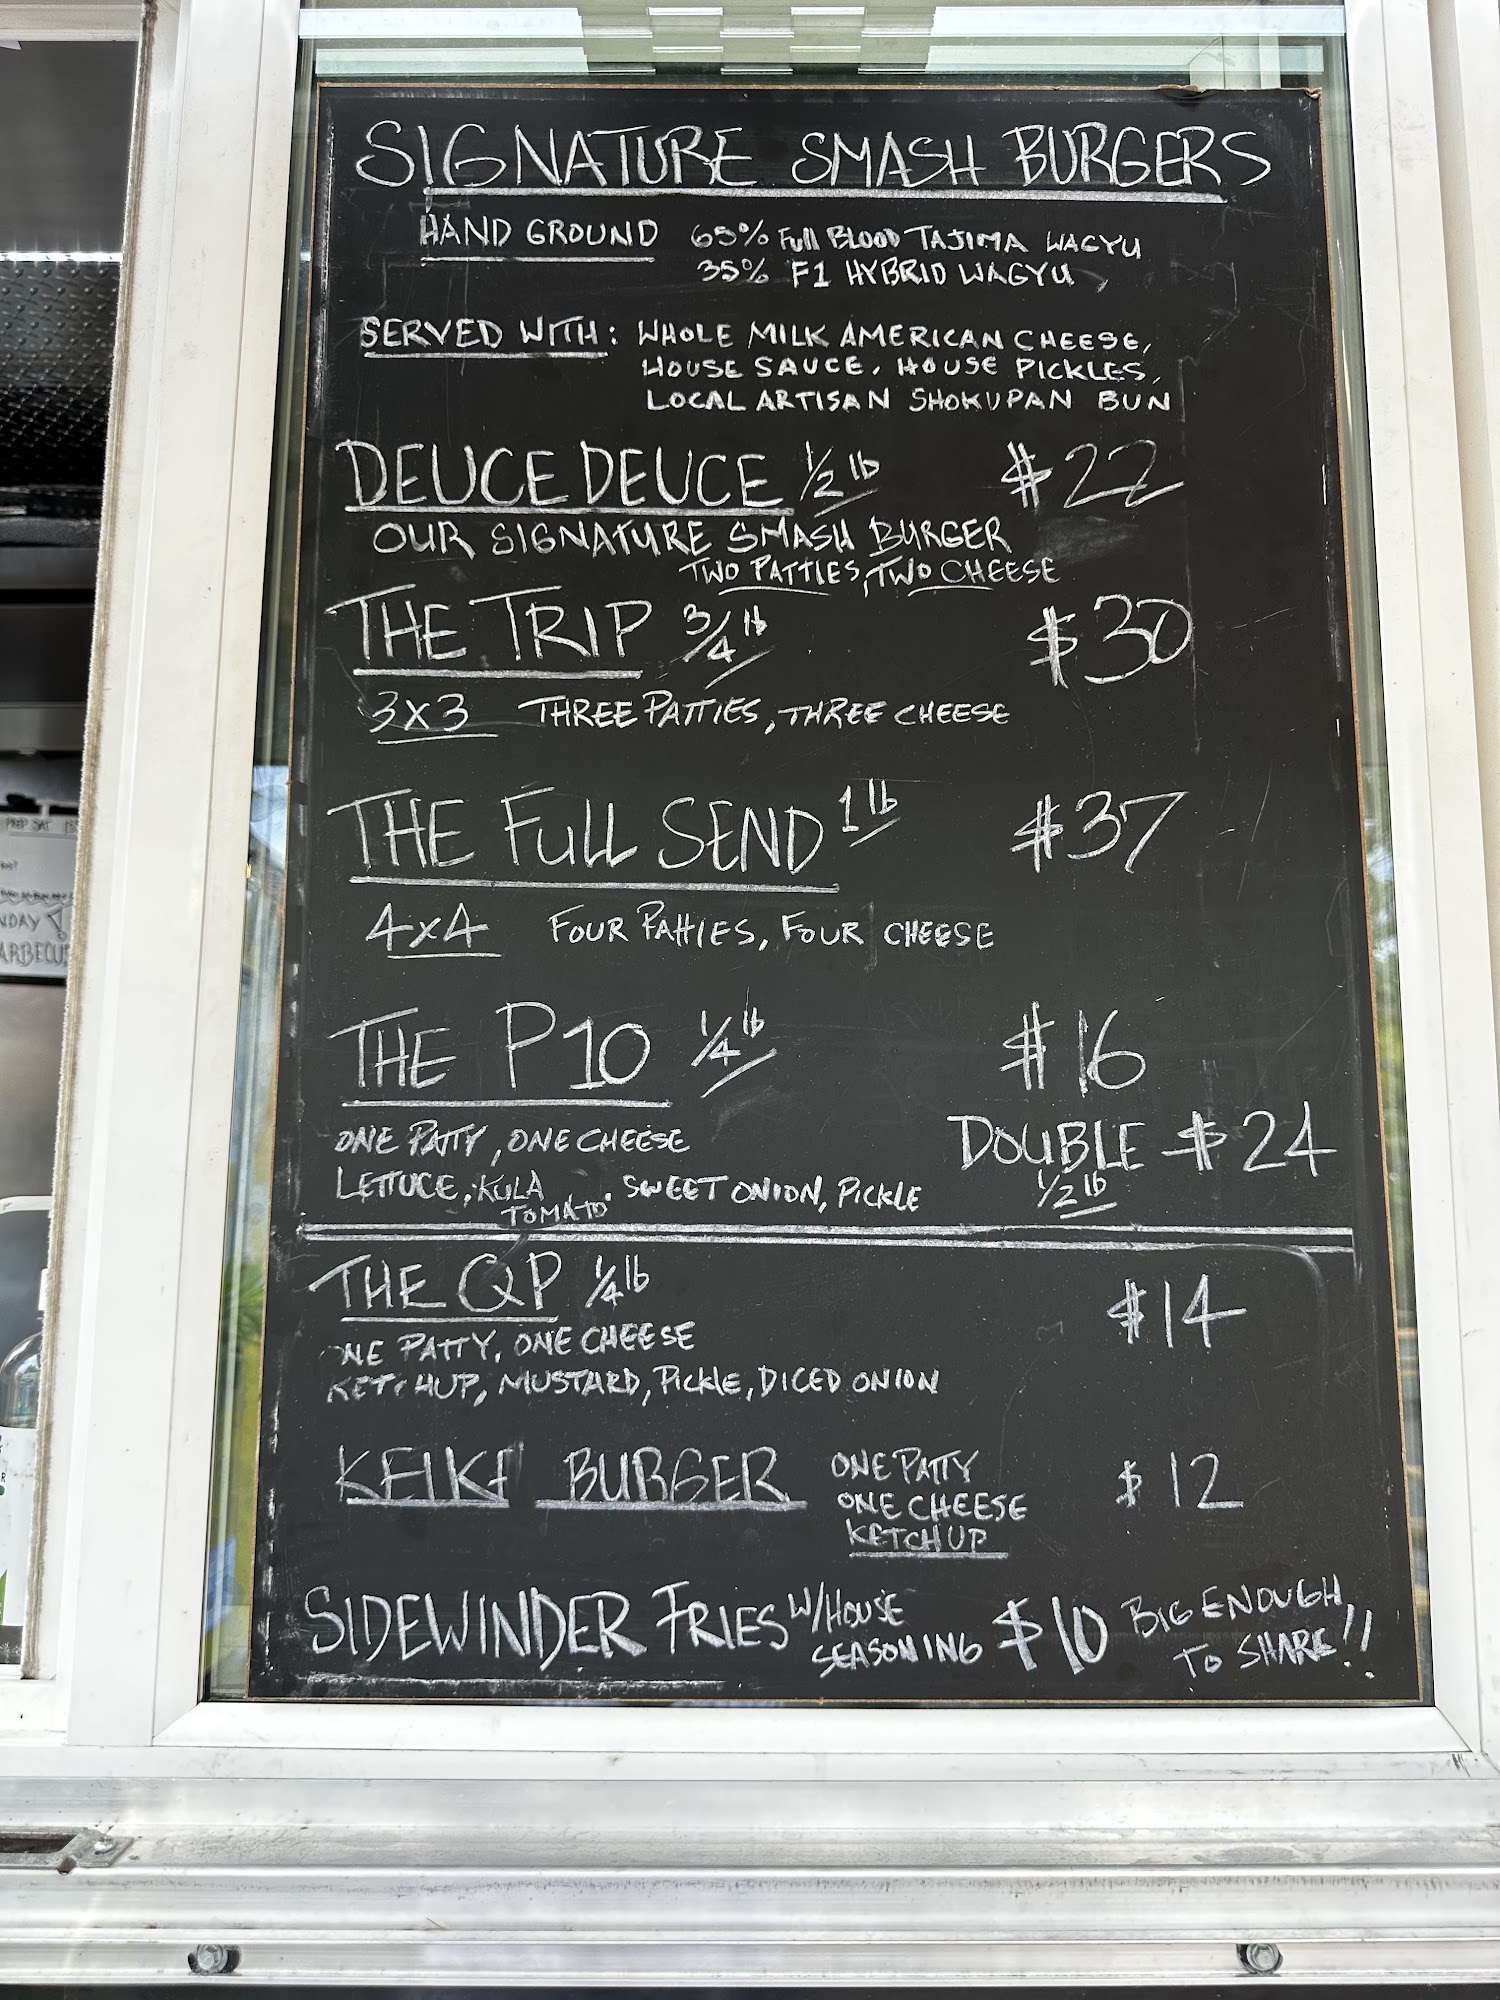 SIGNATURE SMASH BURGERS
HAND GROUND 65% Full BLOOD TAJIMA WAGYU
35% F1 HYBRID WAGYU
SERVED WITH: WHOLE MILK AMERICAN CHEESE,
HOUSE SAUCE, HOUSE PICKLES,
LOCAL ARTISAN SHOKUPAN BUN
DEUCE DEUCE 1/2 lb $22
OUR SIGNATURE SMASH BURGER
TWO PATTIES, TWO CHEESE
THE TRIP 3/4 lb $30
3X3 THREE PATTIES, THREE CHEESE
THE FULL SEND 1 lb $37
4X4 FOUR PATTIES, FOUR CHEESE
THE P10 1/4 lb $16
ONE PATTY, ONE CHEESE DOUBLE $24
LETTUCE, KULA TOMATO, SWEET ONION, PICKLE 1/2 lb
THE QP 1/4 lb $14
ONE PATTY, ONE CHEESE
KETCHUP, MUSTARD, PICKLE, DICED ONION
KEIKI BURGER ONE PATTY $12
ONE CHEESE
KETCHUP
SIDEWINDER FRIES W/HOUSE SEASONING $10 BIG ENOUGH TO SHARE!!